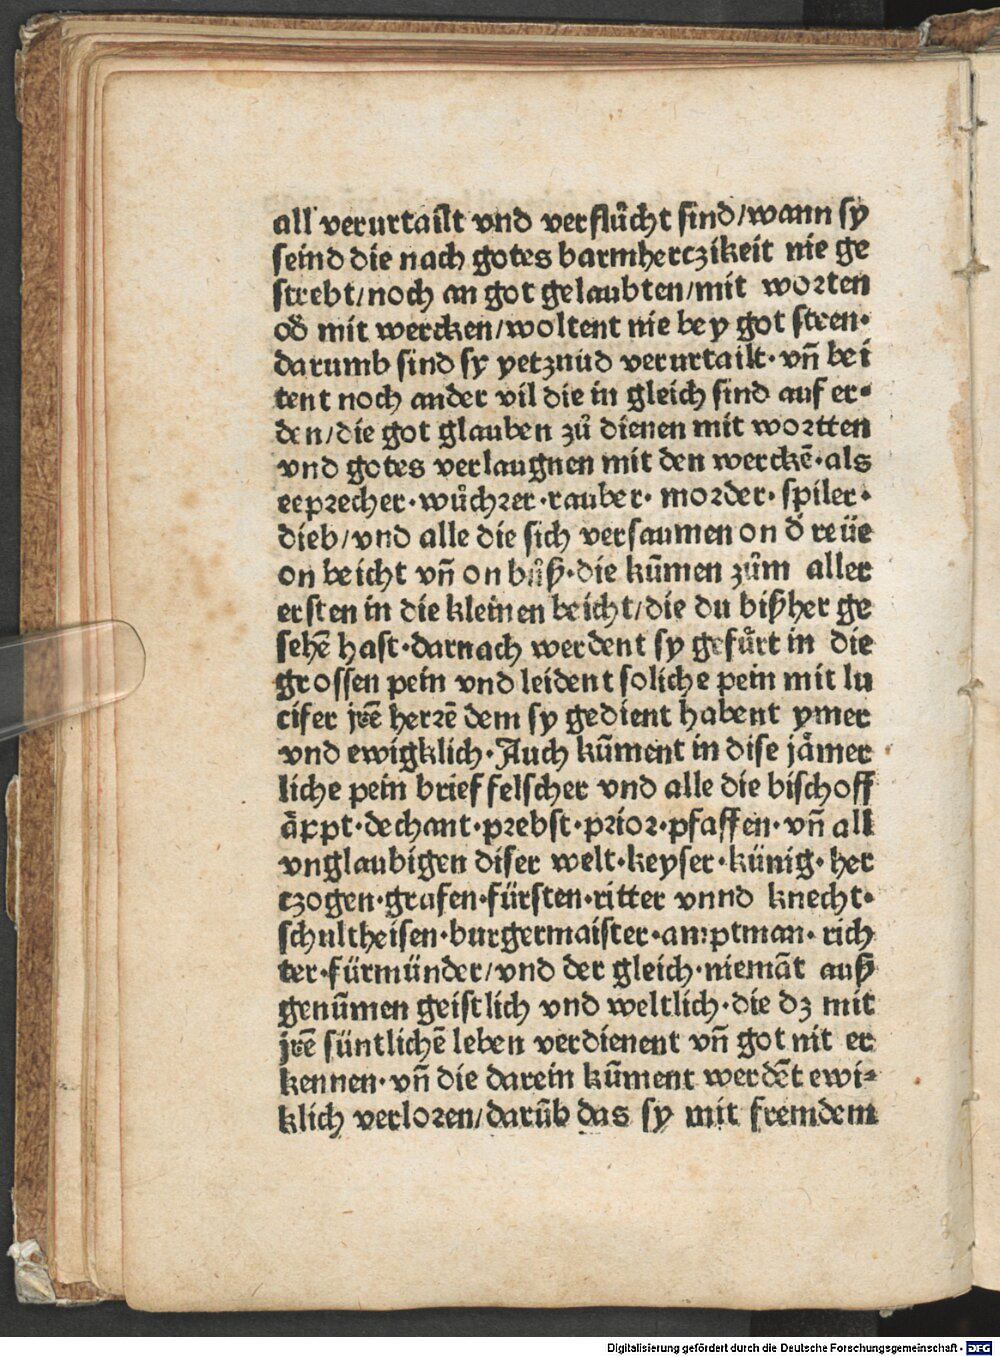 all verurtailt vnd verflůcht sind/wann sy
seind die nach gotes barmherczikeit nie ge
strebt/noch an got gelaubten/mit worten
od̄ mit wercken/woltent nie bey got steen·
darumb sind sy yetznud verurtailt·vn̄ bei
tent noch ander vil die in gleich sind auf er⸗
den/die got glauben zů dienen mit wortten
vnd gotes verlaugnen mit den werckē·als
eeprecher·wůchrer·rauber·morder·spiler·
dieb/vnd alle die sich versaumen on d̄ reüe
on beicht vn̄ on bůß·die kūmen zům aller
ersten in die kleinen beicht/die du bißher ge
sehē hast·darnach werdent sy gefůrt in die
grossen pein vnd leident soliche pein mit lu
cifer jrē herrē dem sy gedient habent ymer
vnd ewigklich·Auch kūment in dise jåmer
liche pein brieffelscher vnd alle die bischoff
äppt·dechant·prebst·prior·pfaffen·vn̄ all
vnglaubigen diser welt·keyser·künig·her
czogen·grafen·fürsten·ritter vnnd knecht·
schultheisen·burgermaister·amptman·rich
ter·fürmünder/vnd der gleich·niemāt auß
genūmen geistlich vnd weltlich·die dz mit
jrē süntlichē leben verdienent vn̄ got nit er
kennen·vn̄ die darein kūment werdēt ewi⸗
klich verloren/darūb das sy mit fremdem
Digitalisierung gefördert durch die Deutsche Forschungsgemeinschaft - DFG